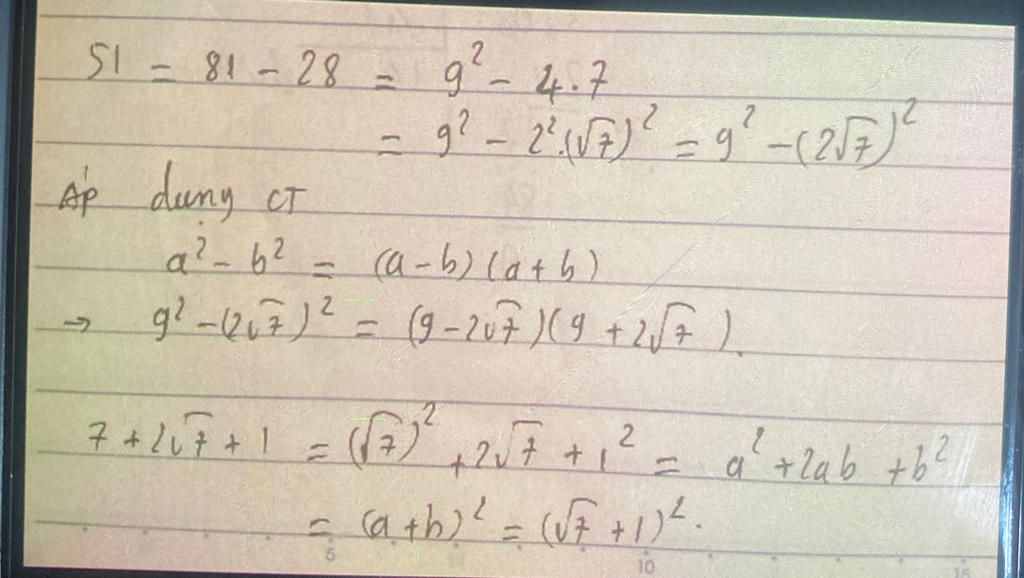 51 = 81 - 28 = 9² - 4.7
= 9² - 2².(√7)² = 9² - (2√7)²
Áp dụng CT
a² - b² = (a - b)(a + b)
→ 9² - (2√7)² = (9 - 2√7)(9 + 2√7).
7 + 2√7 + 1 = (√7)² + 2√7 + 1² = a² + 2ab + b²
= (a + b)² = (√7 + 1)².
5 10 15